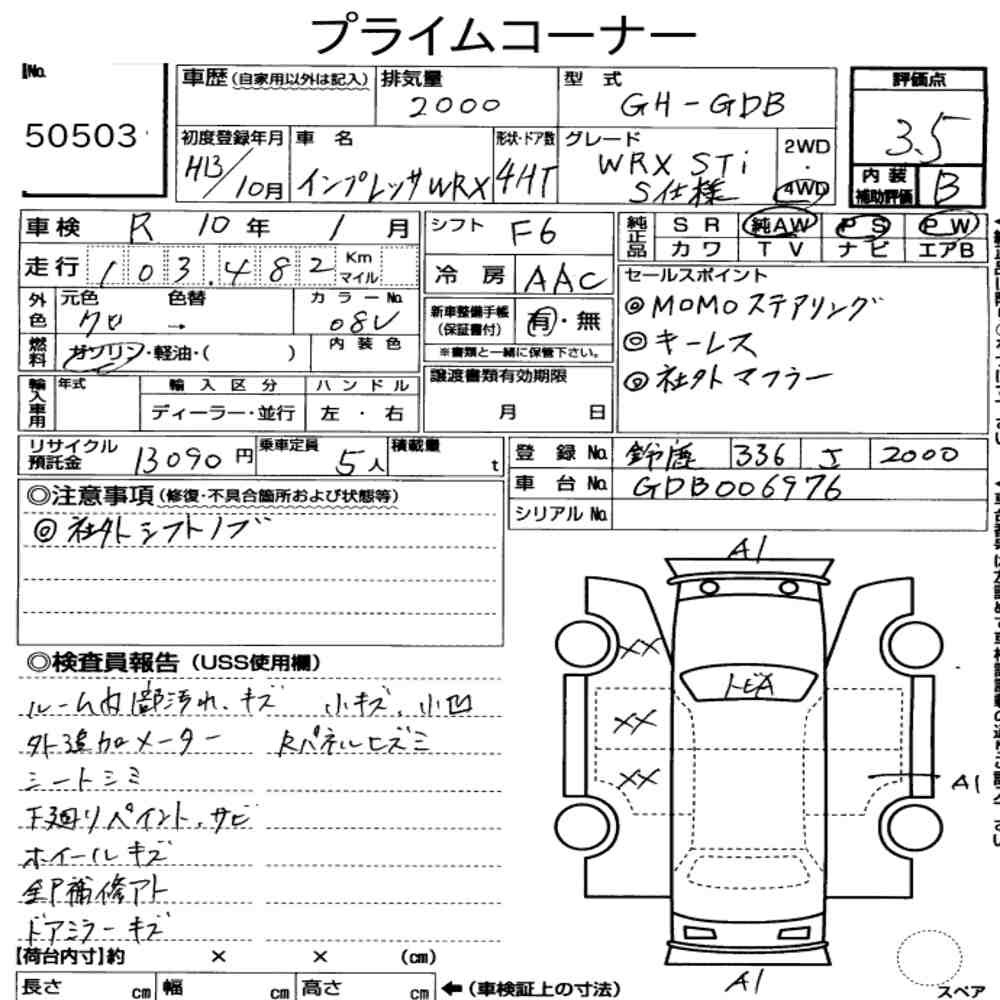 プライムコーナー
No.
50503
車歴 (自家用以外は記入)
排気量
2000
型 式
GH-GDB
評価点
3.5
初度登録年月
H13/10月
車 名
インプレッサWRX
形状・ドア数
4HT
グレード
WRX STi
S仕様
2WD
・
4WD
内 装
補助評価
B
車検 R 10年 1月
シフト F6
純正品
SR 純AW PS PW
カワ TV ナビ エアB
走行 103,482 Km
マイル
冷房 AAC
セールスポイント
◎MOMOステアリング
◎キーレス
◎社外マフラー
外色
元色 色替
クロ →
カラーNo.
08V
新車整備手帳
(保証書付)
有・無
※書類と一緒に保管下さい。
燃料
ガソリン・軽油・( )
内装色
輸入車用
年式
輸入区分
ディーラー・並行
ハンドル
左・右
譲渡書類有効期限
月 日
リサイクル
預託金
13090円
乗車定員
5人
積載量
t
登録No. 鈴鹿 336 2000
車台No. GDB006976
シリアルNo.
◎注意事項(修復・不具合箇所および状態等)
◎社外シフトノブ
◎検査員報告(USS使用欄)
ルーム内部汚れ、キズ 小キズ、小凹
外追加メーター Rパネルヒズミ
シートシミ
下廻りペイント、サビ
ホイールキズ
補修アト
ドアミラーキズ
A1
トビA
XX
XX
XX
A1
A1
【荷台内寸】約 × × (cm)
長さ cm 幅 cm 高さ cm ←(車検証上の寸法)
スペア